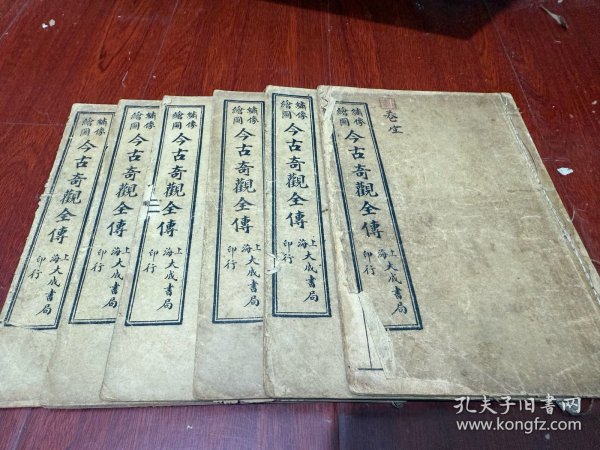 繡像
繪圖
今古奇觀全傳
上海大成書局
印行
繡像
繪圖
今古奇觀全傳
上海大成書局
印行
繡像
繪圖
今古奇觀全傳
上海大成書局
印行
二
繡像
繪圖
今古奇觀全傳
上海大成書局
印行
繡像
繪圖
今古奇觀全傳
上海大成書局
印行
繡像
繪圖
今古奇觀全傳
上海大成書局
印行
孔夫子旧书网
www.kongfz.com